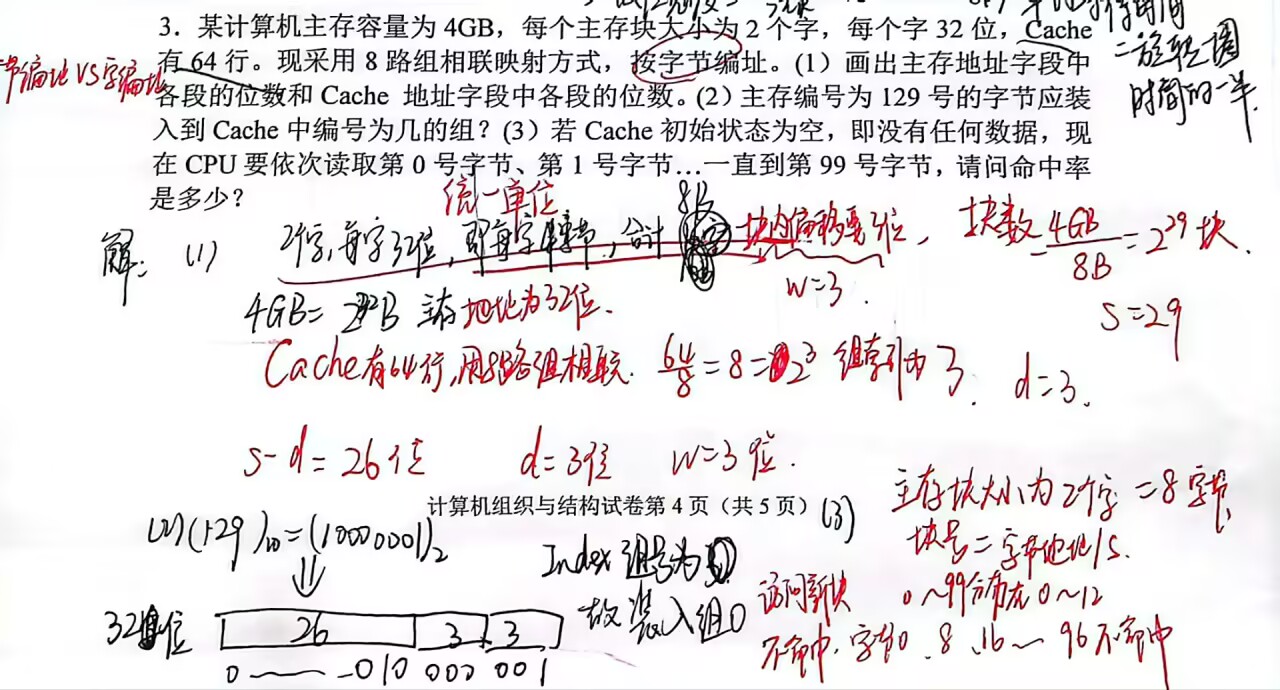 时间
3. 某计算机主存容量为 4GB，每个主存块大小为 2 个字，每个字 32 位，Cache
有 64 行。现采用 8 路组相联映射方式，按字节编址。(1) 画出主存地址字段中
各段的位数和 Cache 地址字段中各段的位数。(2) 主存编号为 129 号的字节应装
入到 Cache 中编号为几的组？(3) 若 Cache 初始状态为空，即没有任何数据，现
在 CPU 要依次读取第 0 号字节、第 1 号字节…一直到第 99 号字节，请问命中率
是多少？
节编址 VS 字编址
=旋转一圈
时间的一半.
统一单位
8B
解: (1) 2个字, 每字32位, 即每字 字节, 合计 块内偏移要3位, 块数=4GB/8B=2^29 块.
w=3.
4GB=2^32B 主存地址为32位.
s=29
Cache有64行, 用8路组相联. 64/8=8=2^3 组索引为3. d=3.
s-d=26位 d=3位 w=3位.
主存块大小为2个字=8字节
计算机组织与结构试卷第 4 页（共 5 页）
(3)
(2) (129)10=(10000001)2
块号=字节地址/8.
Index 组号为0
访问新块 0~99分布在0~12
32位 26 3 3
故装入组0
不命中. 字节0、8、16~96不命中
0 ——— -010 000 001